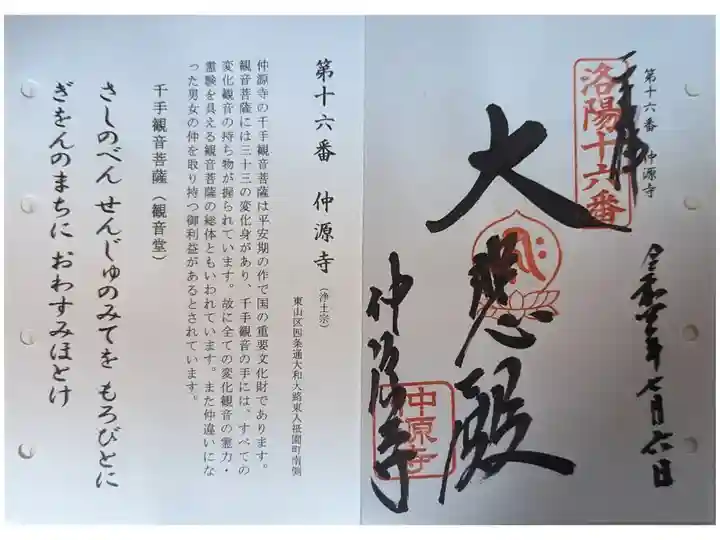 第十六番 仲源寺
千手観音
洛陽十六番
大悲殿
仲源寺
中源寺
令和四年七月六日
第十六番 仲源寺(浄土宗)
東山区四条通大和大路東入祇園町南側
仲源寺の千手観音菩薩は平安期の作で国の重要文化財であります。
観音菩薩には三十三の変化身があり、千手観音の手には、すべての
変化観音の持ち物が握られています。故に全ての変化観音の霊力・
霊験を具える観音菩薩の総体ともいわれています。また仲違いにな
った男女の仲を取り持つ御利益があるとされています。
千手観音菩薩(観音堂)
さしのべん せんじゅのみてを もろびとに
ぎをんのまちに おわすみほとけ